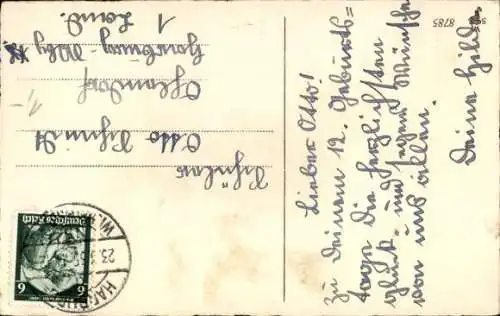 Lieber Otto!
Zu Deinem 12. Geburts=
tage die herzlichsten
Glück- und Segenswünsche
von uns allen.
Deine Hilde.
Schüler
Otto Schmidt
Ohlendorf
Harburg-
1 Land.
1,-
8785
Deutsches Reich
6
6
23.
HARBURG